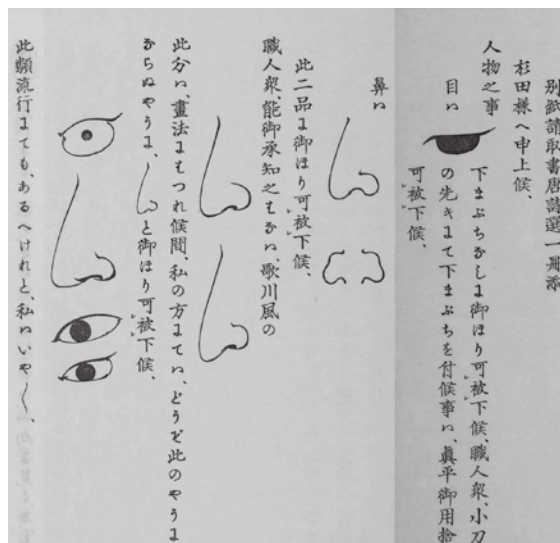 別紙請取書唐詩選一冊添
杉田様へ申上候、
人物之事
目ハ
下まぶちなしに御ほり可被下候、職人衆、小刀
の先きにて下まぶちを付候事ハ、眞平御用捨
可被下候、
鼻ハ
此二品に御ほり可被下候、
職人衆、能御承知之もなハ、歌川風の
此分ハ、畫法にもつれ候間、私の方にてハ、どうぞ此のやうに
ならぬやうに、
と御ほり可被下候、
此類流行にても、あるへけれと、私ハいや〳〵、